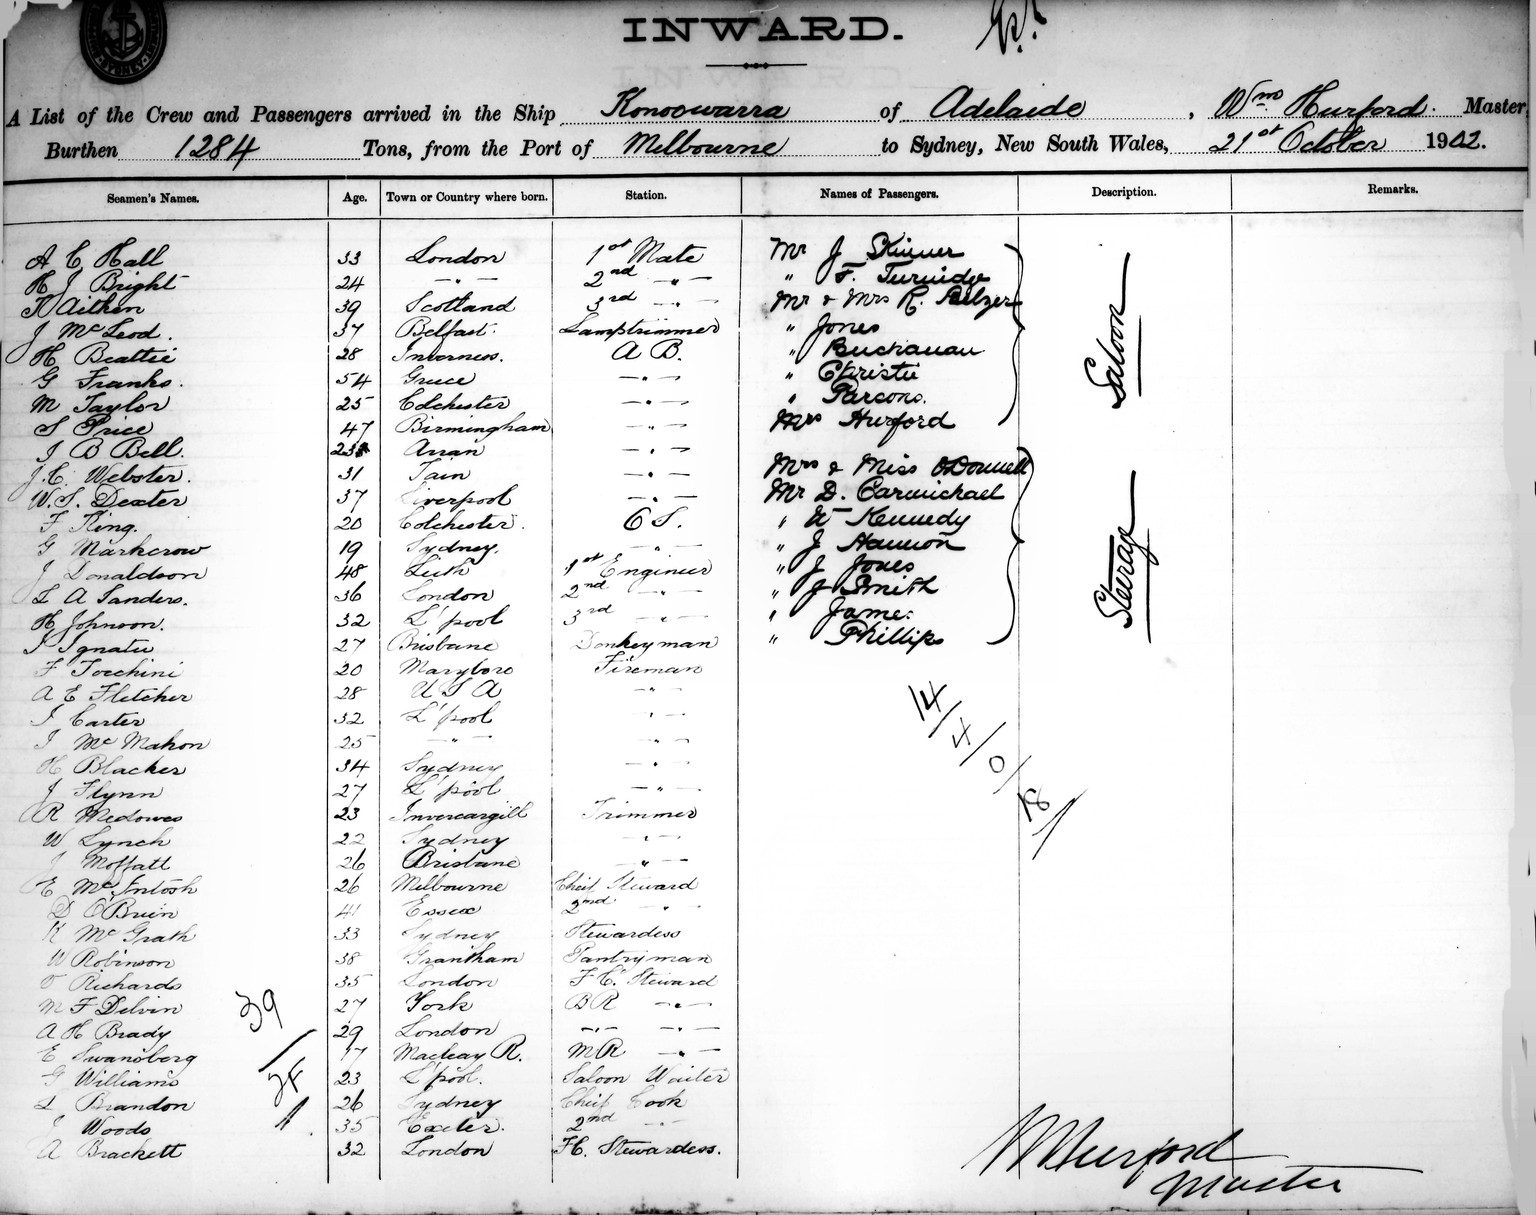 INWARD.
A List of the Crew and Passengers arrived in the Ship Konoowarra of Adelaide, Wm Hurford. Master
Burthen 1284 Tons, from the Port of Melbourne to Sydney, New South Wales, 21st October 1902.
Seamen's Names. Age. Town or Country where born. Station. Names of Passengers. Description. Remarks.
A E Hall 33 London 1st Mate Mr J Skinner
H J Bright 24 —"— 2nd —"— " F.
Aitken 39 Scotland 3rd —"— Mr & Mrs R. Pelzer
J McLeod. 37 Belfast. Lamptrimmer " Jones
H Beattie 28 Inverness. A B. " Buchanan
G Franks. 54 Greece —"— " Christie
M Taylor 25 Colchester —"— " Parsons.
S Price 47 Birmingham —"— Mrs Hurford
Saloon
I B Bell. Arran —"— Mrs & Miss O'Donnell
J. C. Webster. 31 Tain —"— Mr D. Carmichael
W. S. Dexter 37 Liverpool —"— " W Kennedy
F King. 20 Colchester. O S. " J Hannon
G Markcrow 19 Sydney. —"— " J Jones
J Donaldson 48 Leith 1st Engineer " J Smith
L A Sanders. 36 London 2nd —"— " James
H Johnson. 32 L'pool 3rd —"— " Phillips
Steerage
I Ignatu 27 Brisbane Donkeyman
F Tocchini 20 Maryboro Fireman
A E Fletcher 28 U S A —"—
J Carter 32 L'pool —"—
J McMahon 25 —"— —"—
H Blacker 34 Sydney —"—
J Flynn 27 L'pool —"—
R Medowes 23 Invercargill Trimmer
W Lynch 22 Sydney —"—
J Moffatt 26 Brisbane —"—
E McIntosh 26 Melbourne Cheif Steward
D O'Brien 41 Essex 2nd —"—
K McGrath 33 Sydney Stewardess
W Robinson 38 Grantham Pantryman
Richards 35 London F C. Steward
M F Delvin 27 York B R —"—
A H Brady 29 London —"— —"—
E Swansberg 17 Macleay R. M R —"—
G Williams 23 L'pool. Saloon Waiter
L Brandon 26 Sydney Cheif Cook
J Woods 35 Exeter. 2nd —"—
A Brackett 32 London F.C. Stewardess.
39
14/4/0/18/
W Hurford
Master